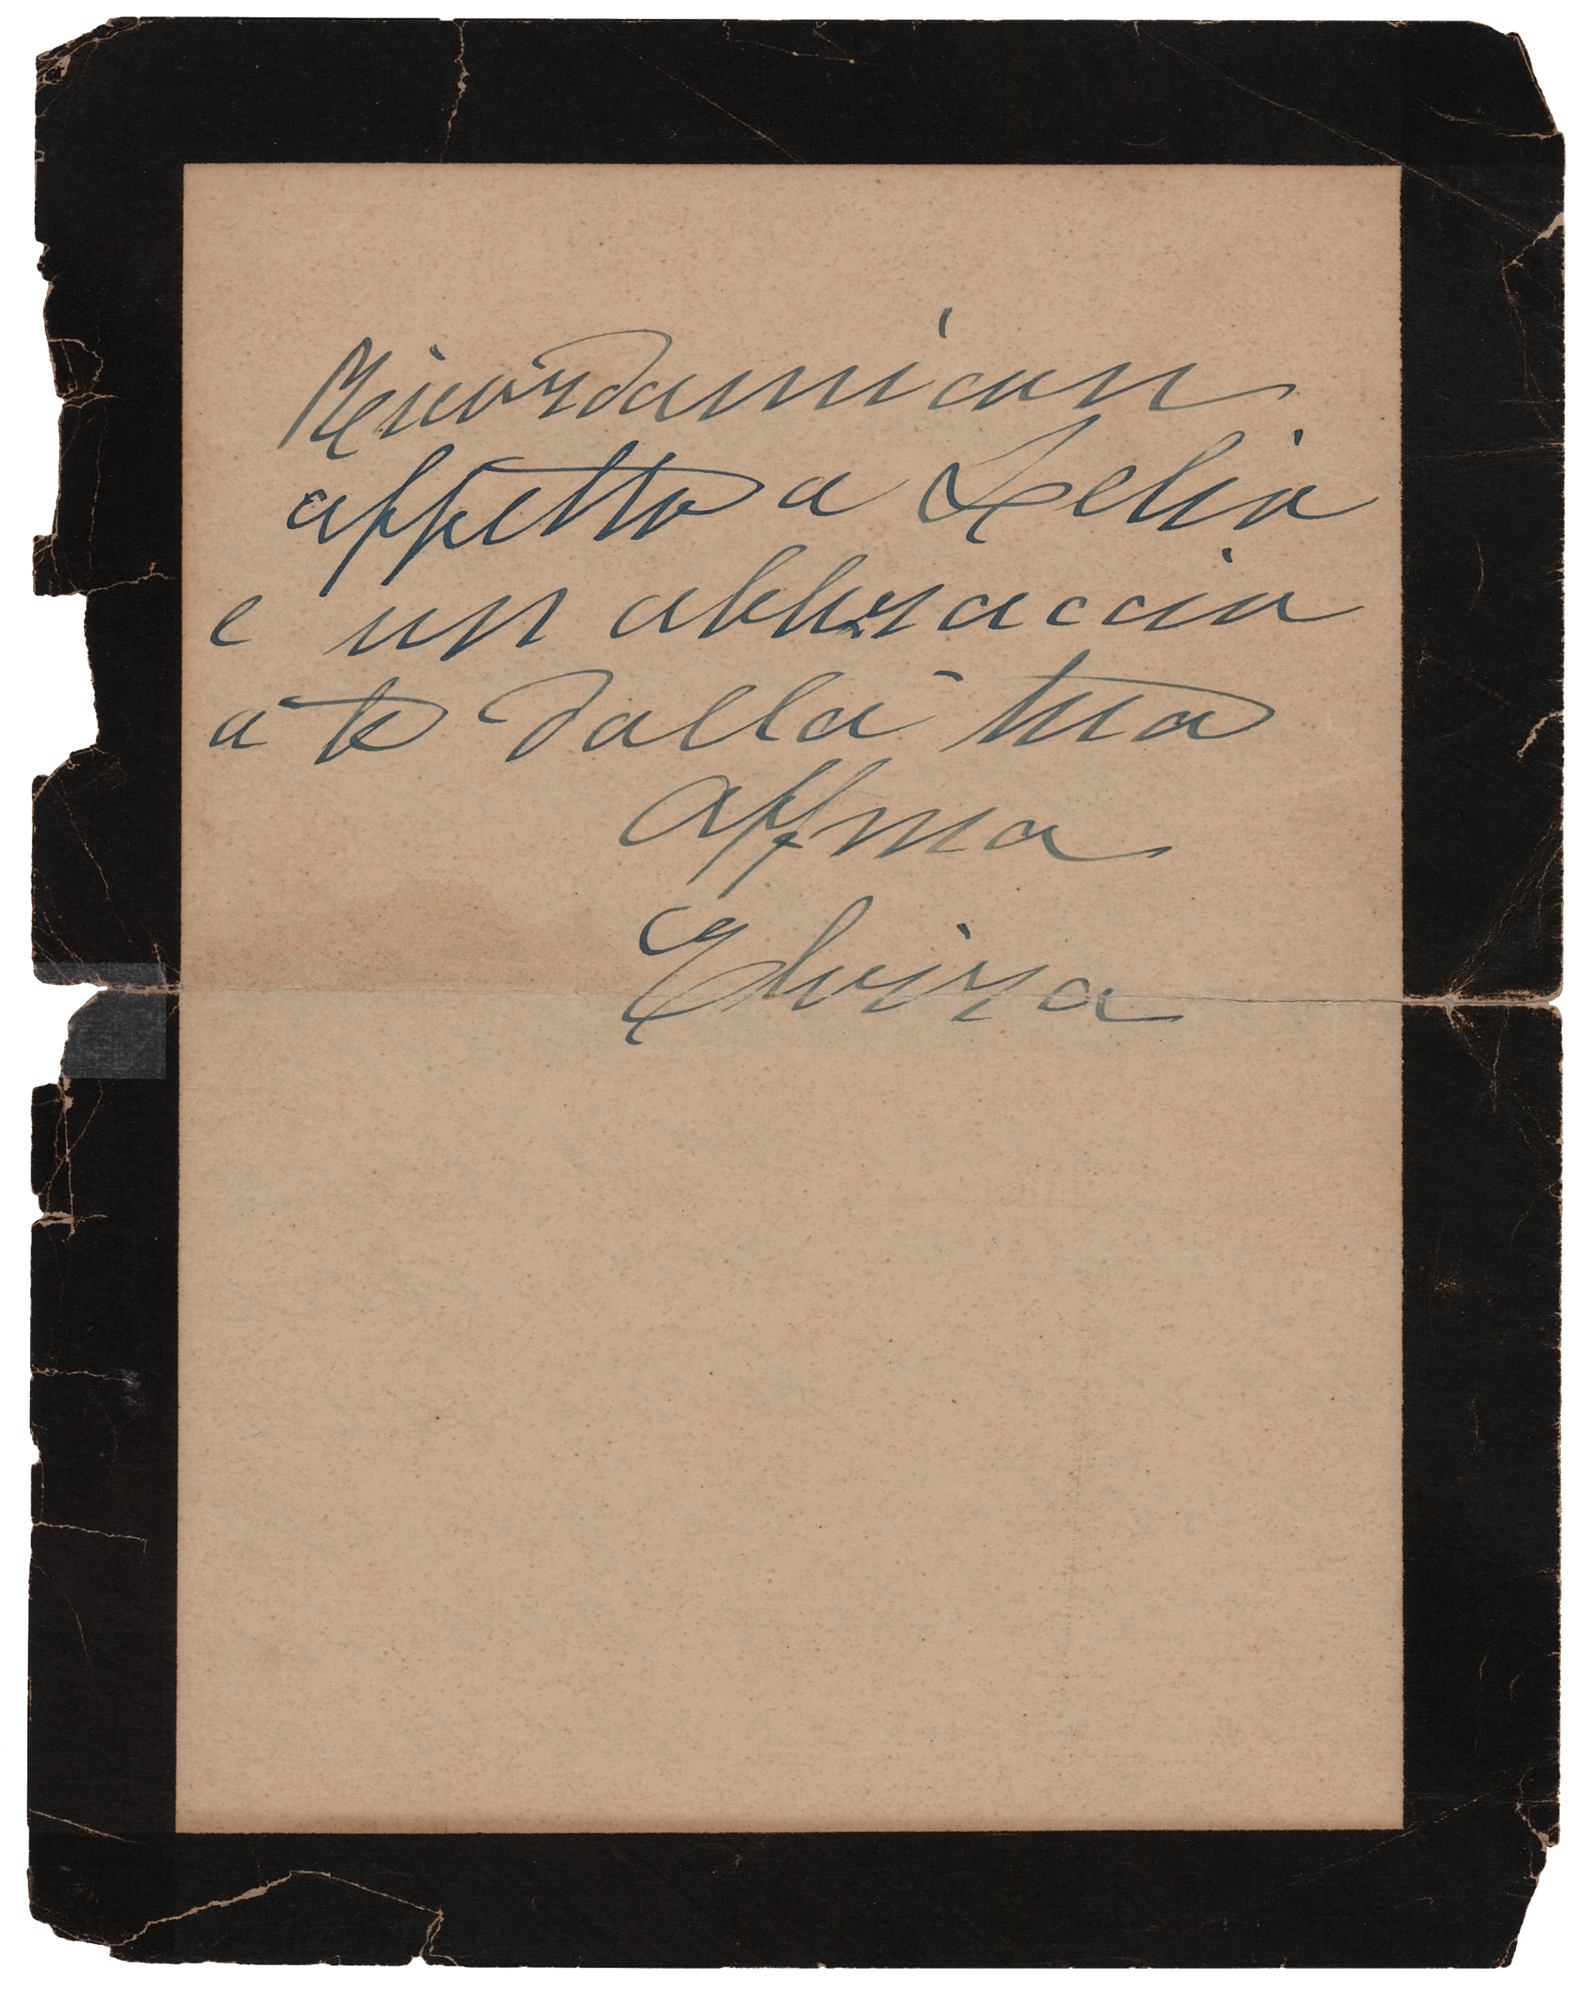 Ricordami con
affetto a Lelia
e un abbraccio
a te dalla tua
affma
Elvira